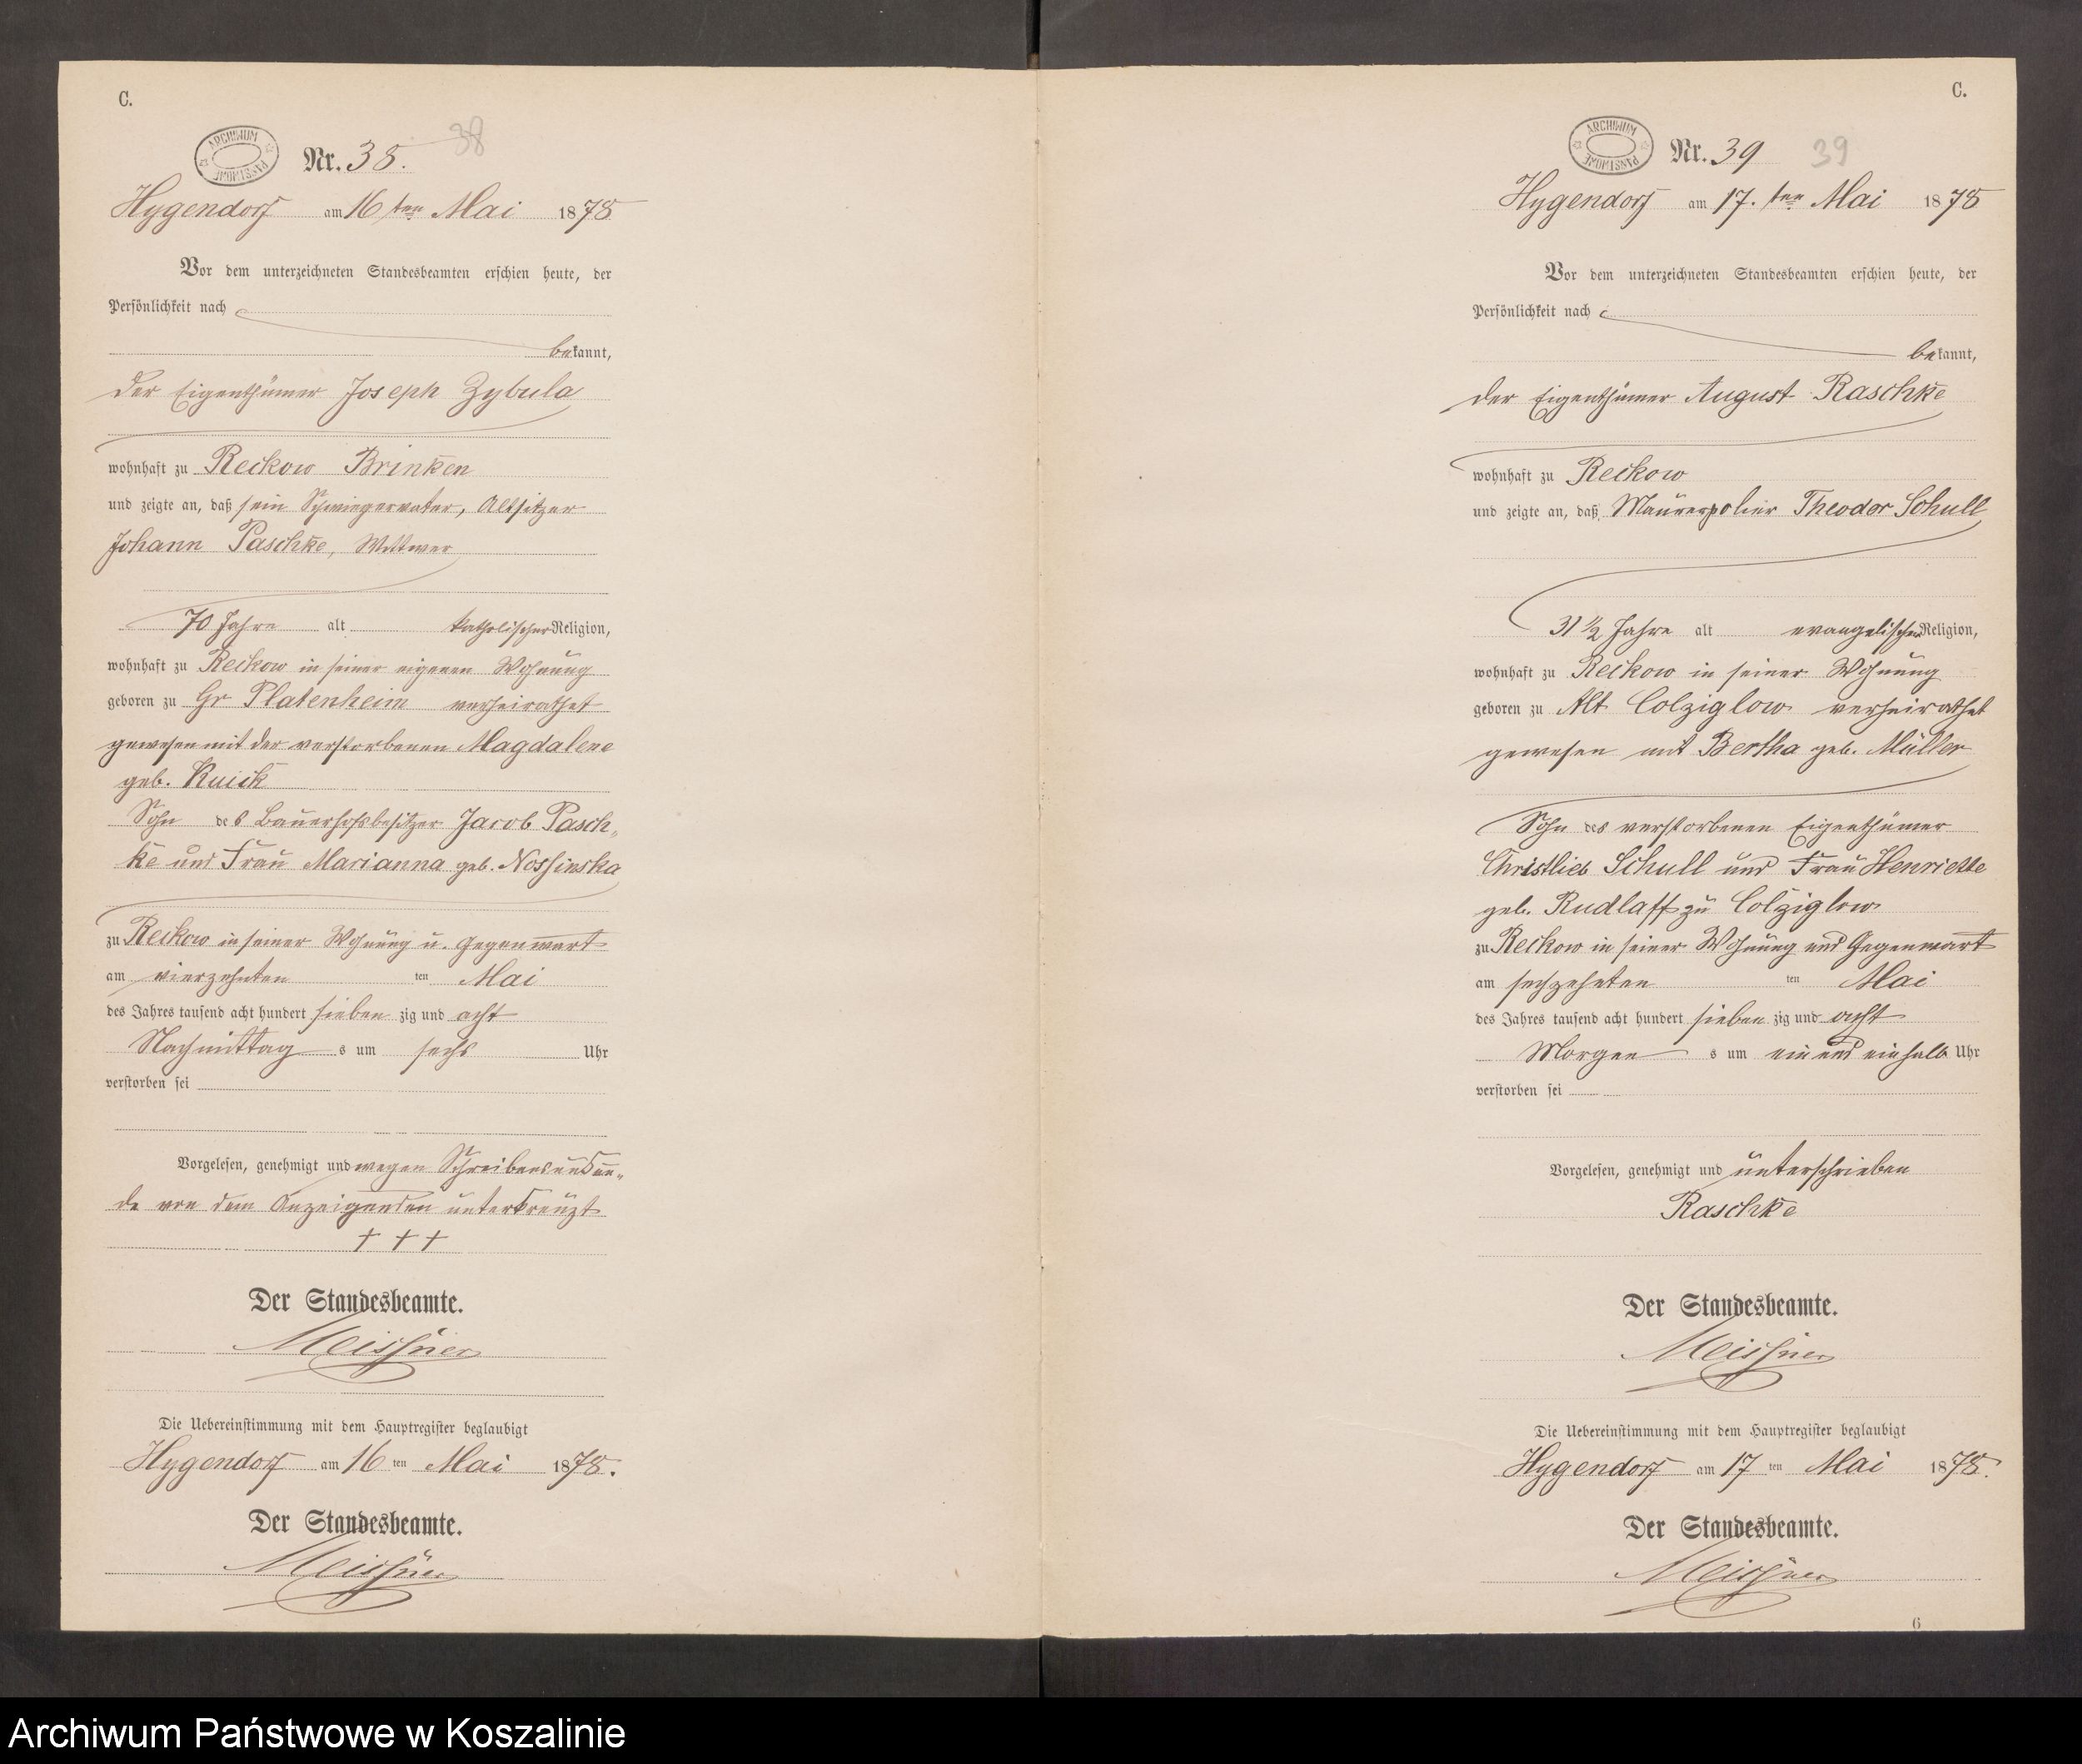 C.
ARCHIWUM PAŃSTWOWE
Nr. 38. 38
Hygendorf am 16 ten Mai 1878
Vor dem unterzeichneten Standesbeamten erschien heute, der
Persönlichkeit nach
bekannt,
der Eigenthümer Joseph Zybula
wohnhaft zu Reckow Brinken
und zeigte an, daß sein Schwiegervater, Altsitzer
Johann Paschke, Wittwer
70 Jahre alt katholischer Religion,
wohnhaft zu Reckow in seiner eigenen Wohnung
geboren zu Gr Platenheim verheirathet
gewesen mit der verstorbenen Magdalene
geb. Kuick
Sohn des Bauerhofsbesitzer Jacob Pasch-
ke und Frau Marianna geb. Nossinska
zu Reckow in seiner Wohnung u. Gegenwart
am vierzehnten ten Mai
des Jahres tausend acht hundert sieben zig und acht
Nachmittag s um sechs Uhr
verstorben sei
Vorgelesen, genehmigt und wegen Schreibensunkun-
de von dem Anzeigenden unterkreuzt
+ + +
Der Standesbeamte.
Meissner
Die Uebereinstimmung mit dem Hauptregister beglaubigt
Hygendorf am 16 ten Mai 1878.
Der Standesbeamte.
Meissner
C.
ARCHIWUM PAŃSTWOWE
Nr. 39 39
Hygendorf am 17. ten Mai 1878
Vor dem unterzeichneten Standesbeamten erschien heute, der
Persönlichkeit nach
bekannt,
der Eigenthümer August Raschke
wohnhaft zu Reckow
und zeigte an, daß Maurerpolier Theodor Schull
31 1/2 Jahre alt evangelischer Religion,
wohnhaft zu Reckow in seiner Wohnung
geboren zu Alt Colziglow verheirathet
gewesen mit Bertha geb. Müller
Sohn des verstorbenen Eigenthümer
Christlieb Schull und Frau Henriette
geb. Rudlaff zu Colziglow
zu Reckow in seiner Wohnung und Gegenwart
am sechzehnten ten Mai
des Jahres tausend acht hundert sieben zig und acht
Morgen s um ein und einhalb Uhr
verstorben sei
Vorgelesen, genehmigt und unterschrieben
Raschke
Der Standesbeamte.
Meissner
Die Uebereinstimmung mit dem Hauptregister beglaubigt
Hygendorf am 17 ten Mai 1878.
Der Standesbeamte.
Meissner
6
Archiwum Państwowe w Koszalinie